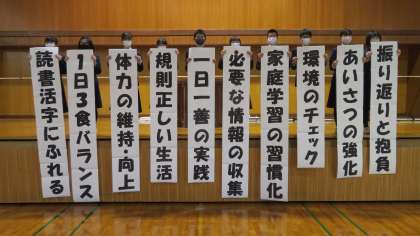 振り返りと抱負
あいさつの強化
環境のチェック
家庭学習の習慣化
必要な情報の収集
一日一善の実践
規則正しい生活
体力の維持・向上
1日3食バランス
読書活字にふれる